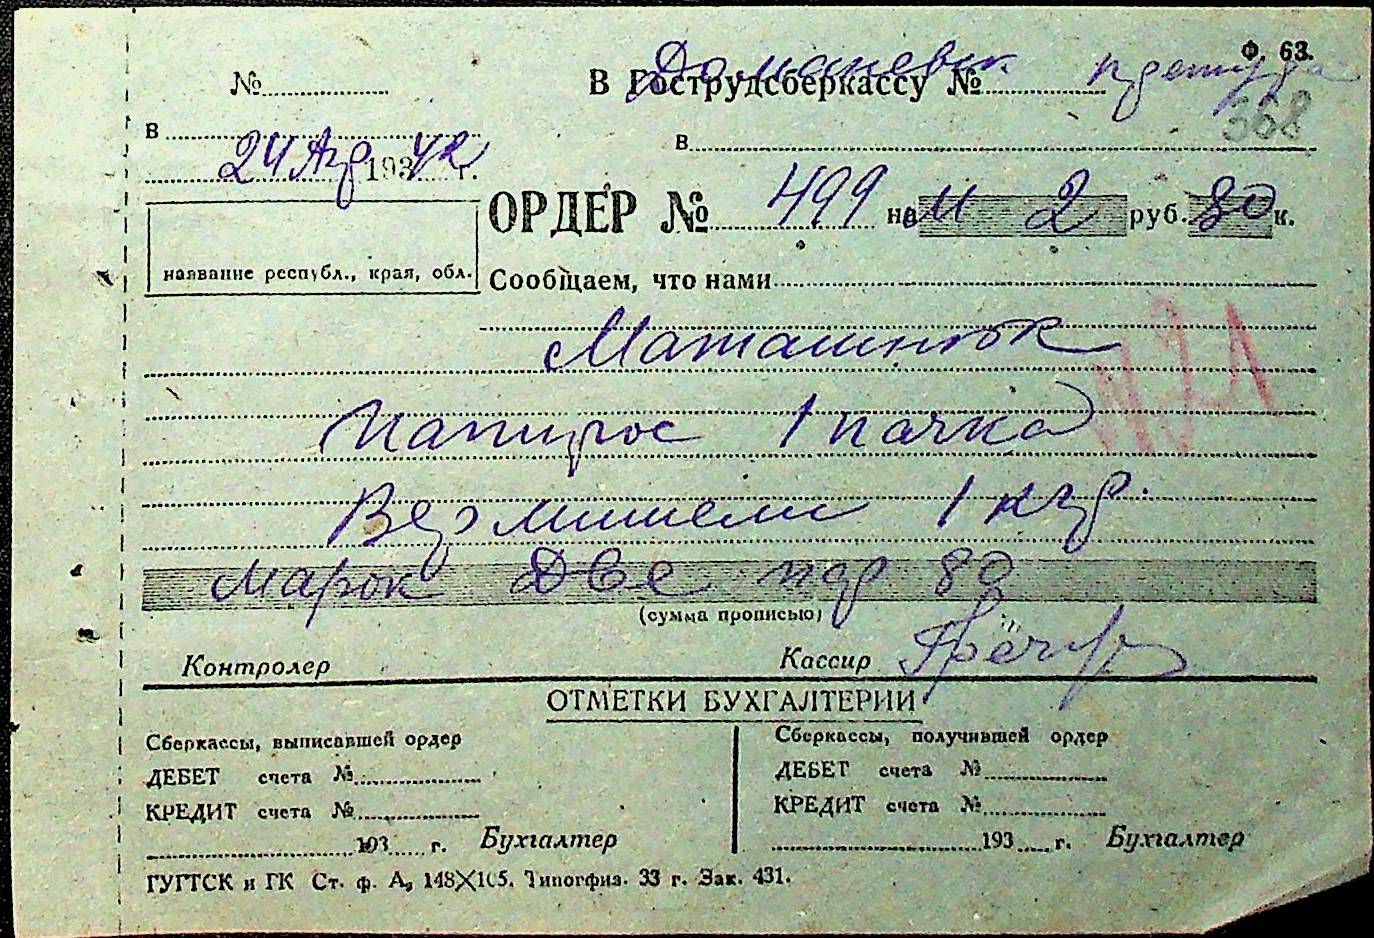 Ф. 63.
№ В Гострудсберкассу №
568
в в
24 Апр 1942 г.
ОРДЕР № 499 на М 2 руб. 80 к.
название республ., края, обл. Сообщаем, что нами
Маташнюк
Папирос 1 пачка
Вермишели 1 кгр.
Марок Две пф 80
(сумма прописью)
Контролер Кассир
ОТМЕТКИ БУХГАЛТЕРИИ
Сберкассы, выписавшей ордер Сберкассы, получившей ордер
ДЕБЕТ счета № ДЕБЕТ счета №
КРЕДИТ счета № КРЕДИТ счета №
193 г. Бухгалтер 193 г. Бухгалтер
ГУГТСК и ГК Ст. ф. А, 148X105. Типогфиз. 33 г. Зак. 431.